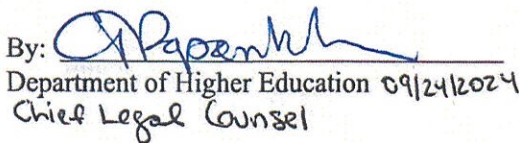 By:
Department of Higher Education 09/24/2024
Chief Legal Counsel